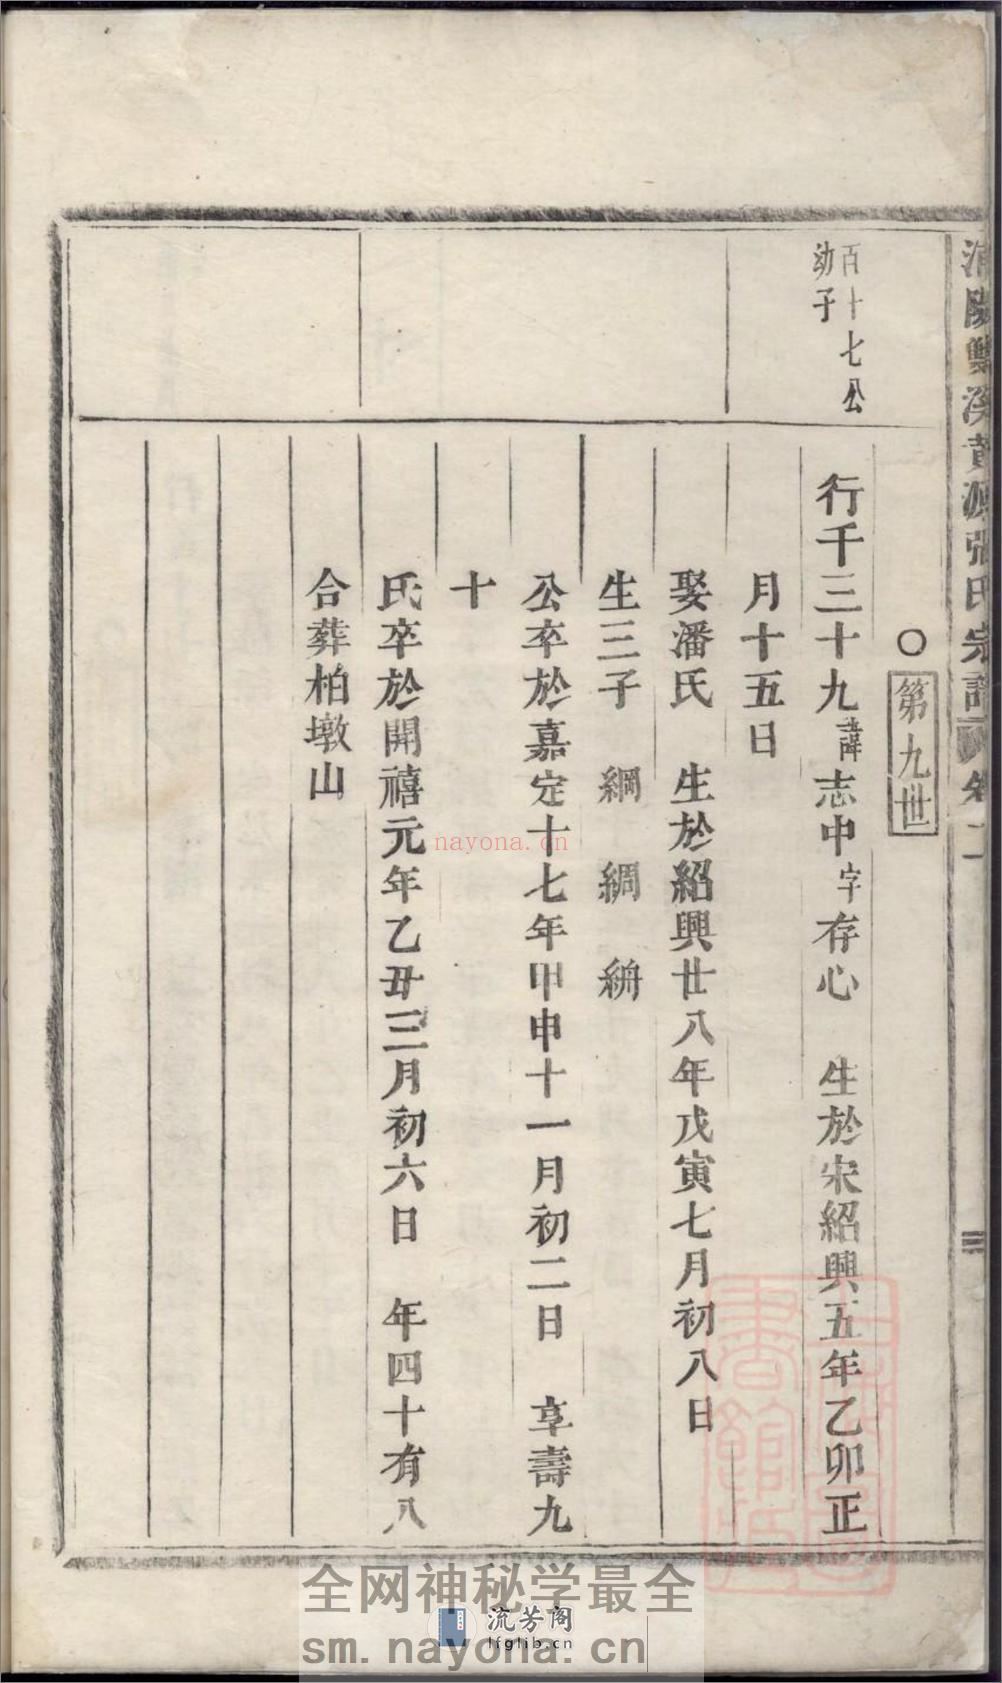 浦陽雙溪黄源張氏宗譜 卷二
〇第九世
百十七公
幼子
行千三十九諱志中字存心 生於宋紹興五年乙卯正
月十五日
娶潘氏 生於紹興廿八年戊寅七月初八日
生三子 綱 綢 𦀌
公卒於嘉定十七年甲申十一月初二日 享壽九
十
氏卒於開禧元年乙丑三月初六日 年四十有八
合葬柏墩山
nayona.cn
全网神秘学最全
流芳阁
lfglib.cn
sm.nayona.cn